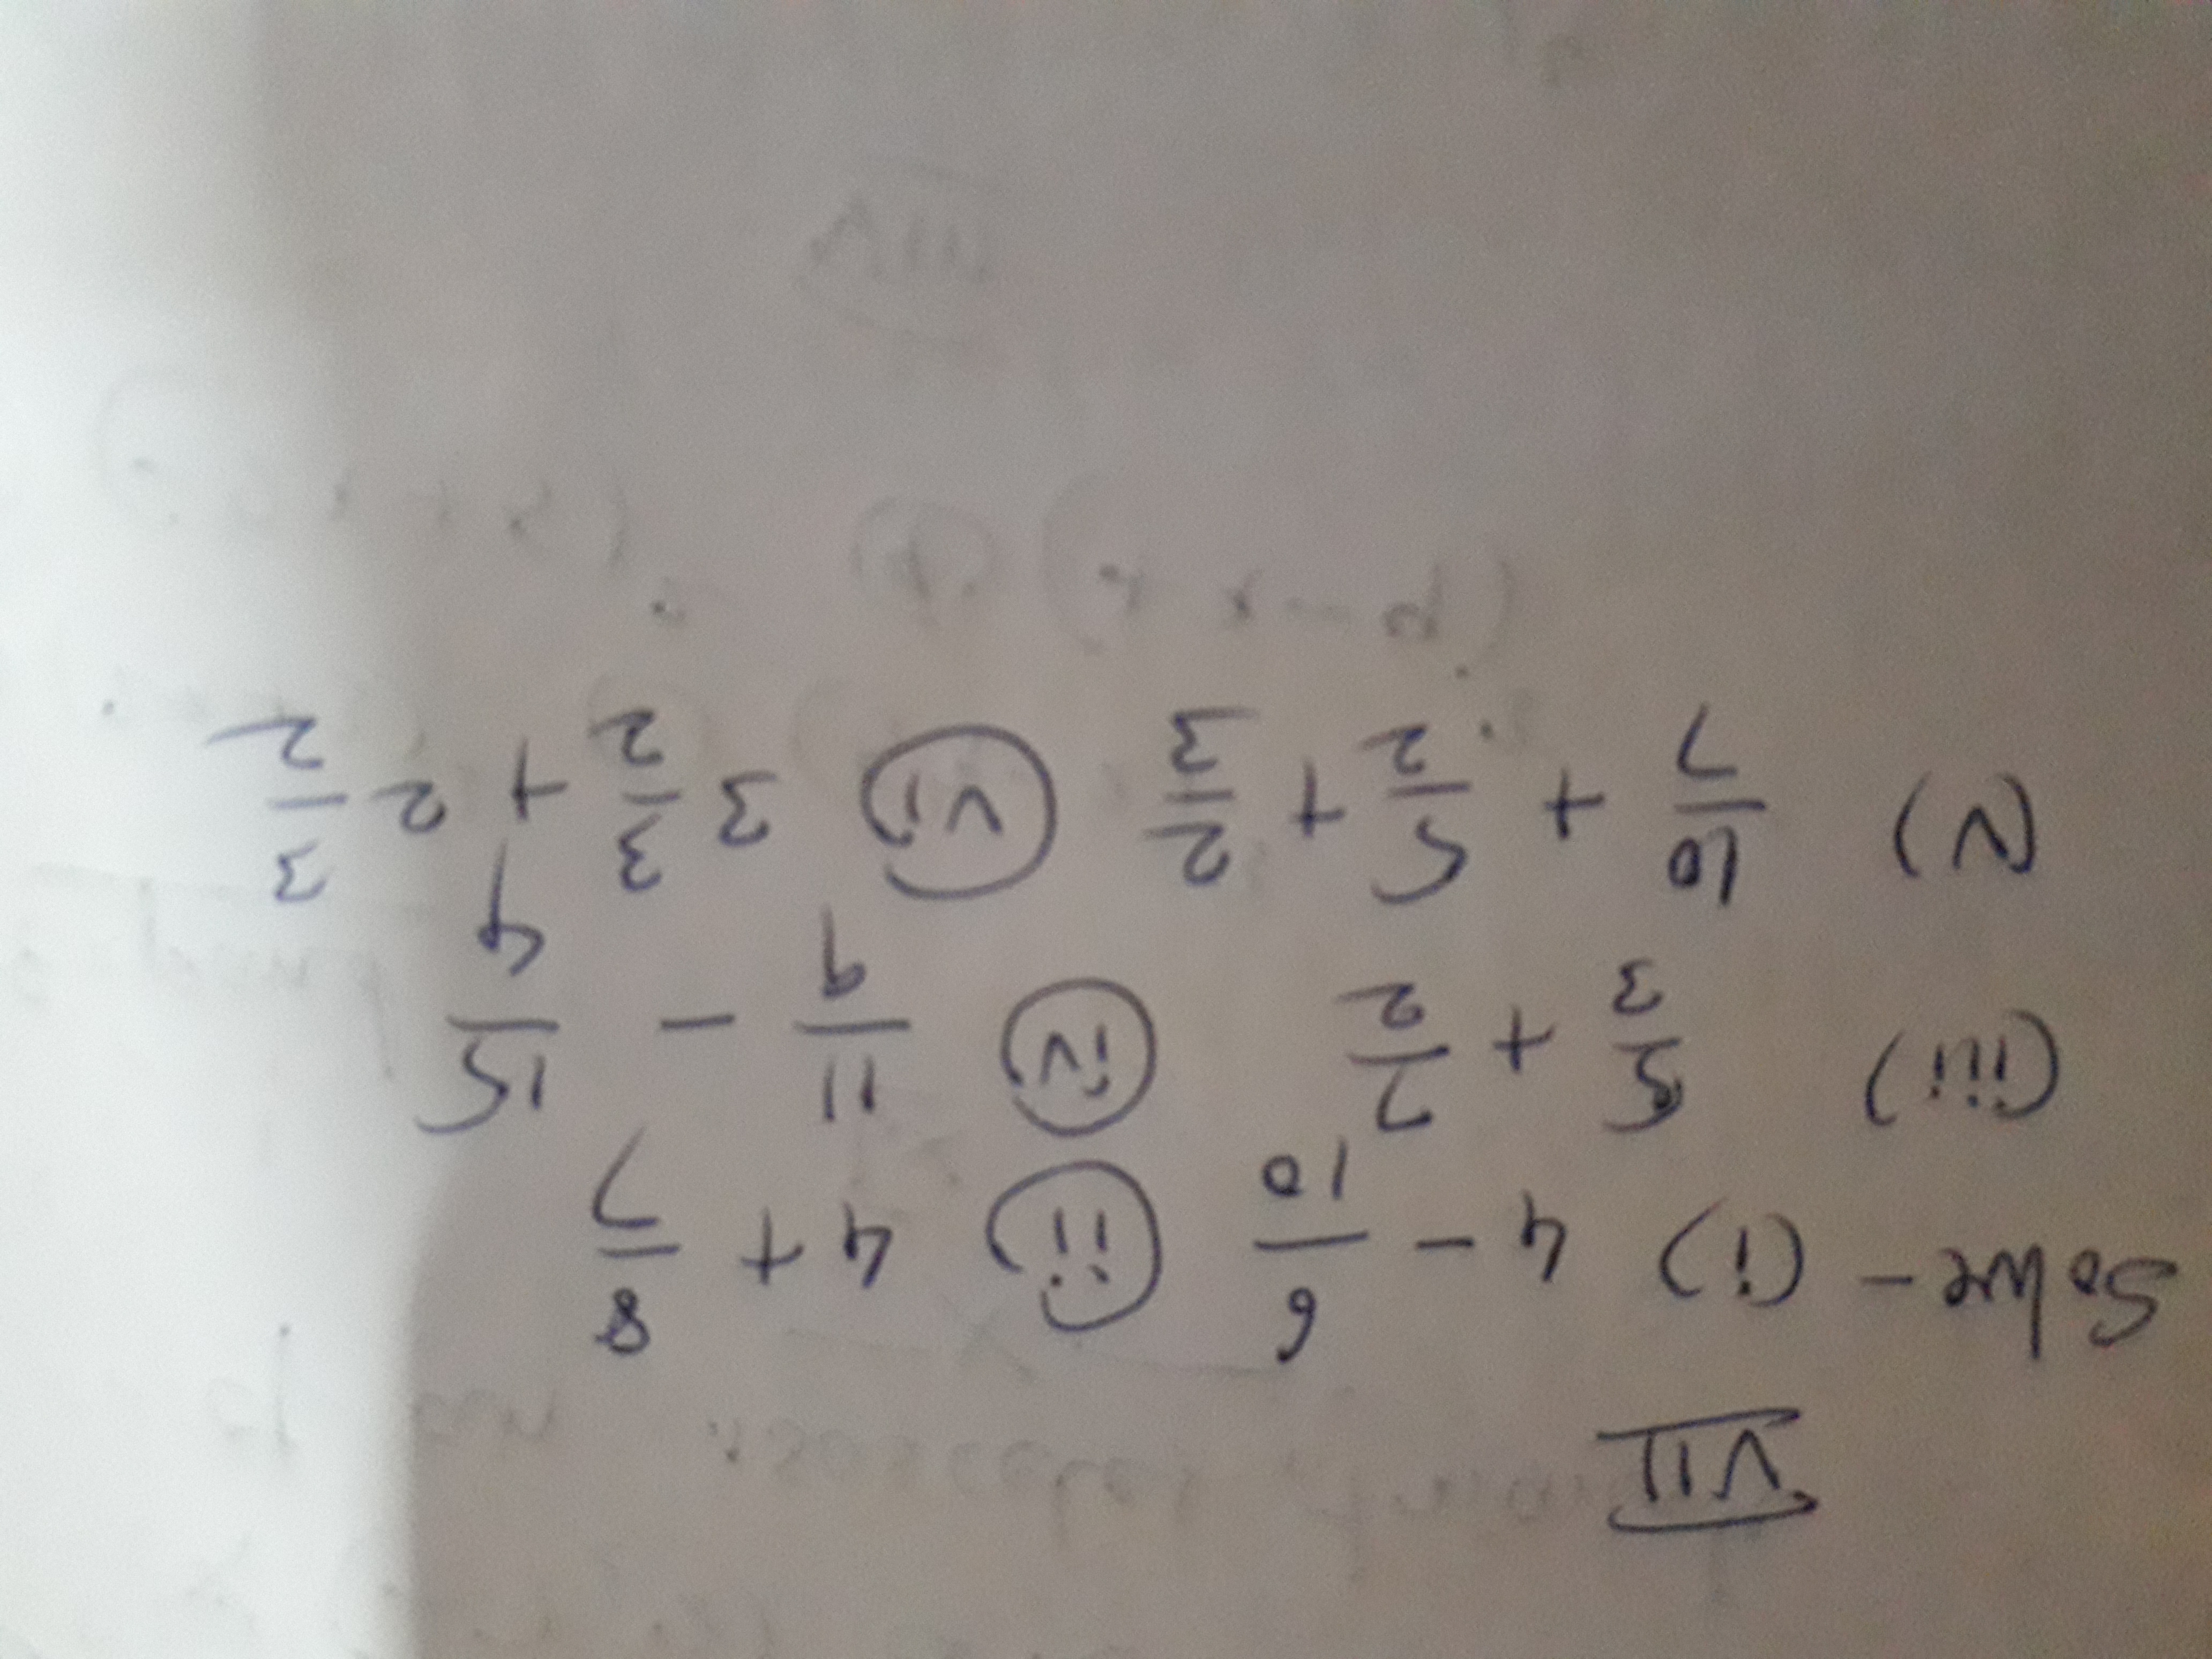 VII
Solve - (i) 4 - 6/10 (ii) 4 + 8/7
(iii) 5/3 + 7/2 (iv) 11/9 - 15/4
(v) 10/7 + 5/2 + 2/3 (vi) 3 3/2 + 2 3/2